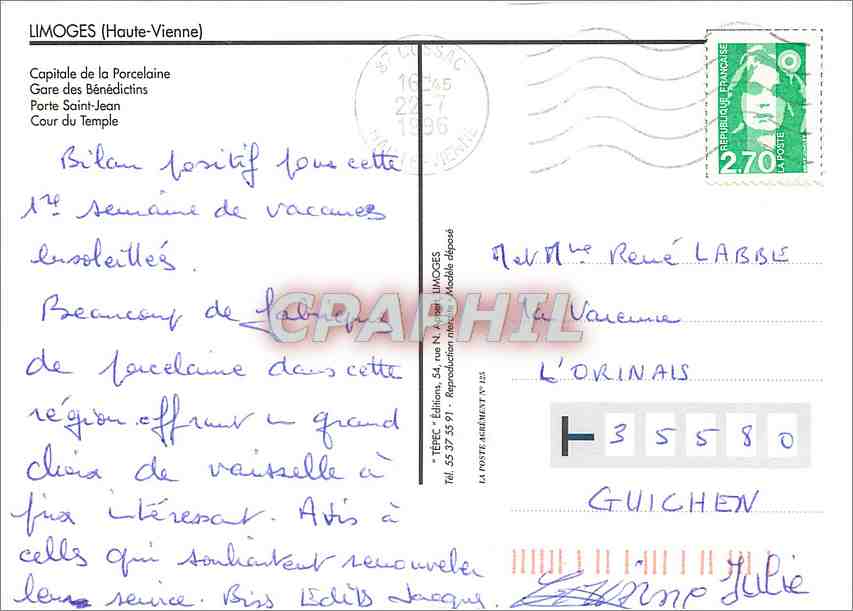 LIMOGES (Haute-Vienne)
Capitale de la Porcelaine
Gare des Bénédictins
Porte Saint-Jean
Cour du Temple
Bilan positif pour cette
1re semaine de vacances
ensoleillés.
Beaucoup de fabriques
de porcelaine dans cette
région offrant un grand
choix de vaisselle à
prix intéressant. Avis à
celles qui souhaitent renouveler
leur service. Biss Edith Jacques.
Julie
ST CUSSAC
16H45
22-7
1996
HAUTE-VIENNE
RÉPUBLIQUE FRANÇAISE
2,70
LA POSTE
"TÉPEC" Éditions, 54, rue N. Appert, LIMOGES
Tél. 55 37 55 91 - Reproduction interdite - Modèle déposé
LA POSTE AGRÉMENT N° 125
CPAPHIL
M et Mme René LABBE
La Varenne
L'ORINAIS
35580
GUICHEN